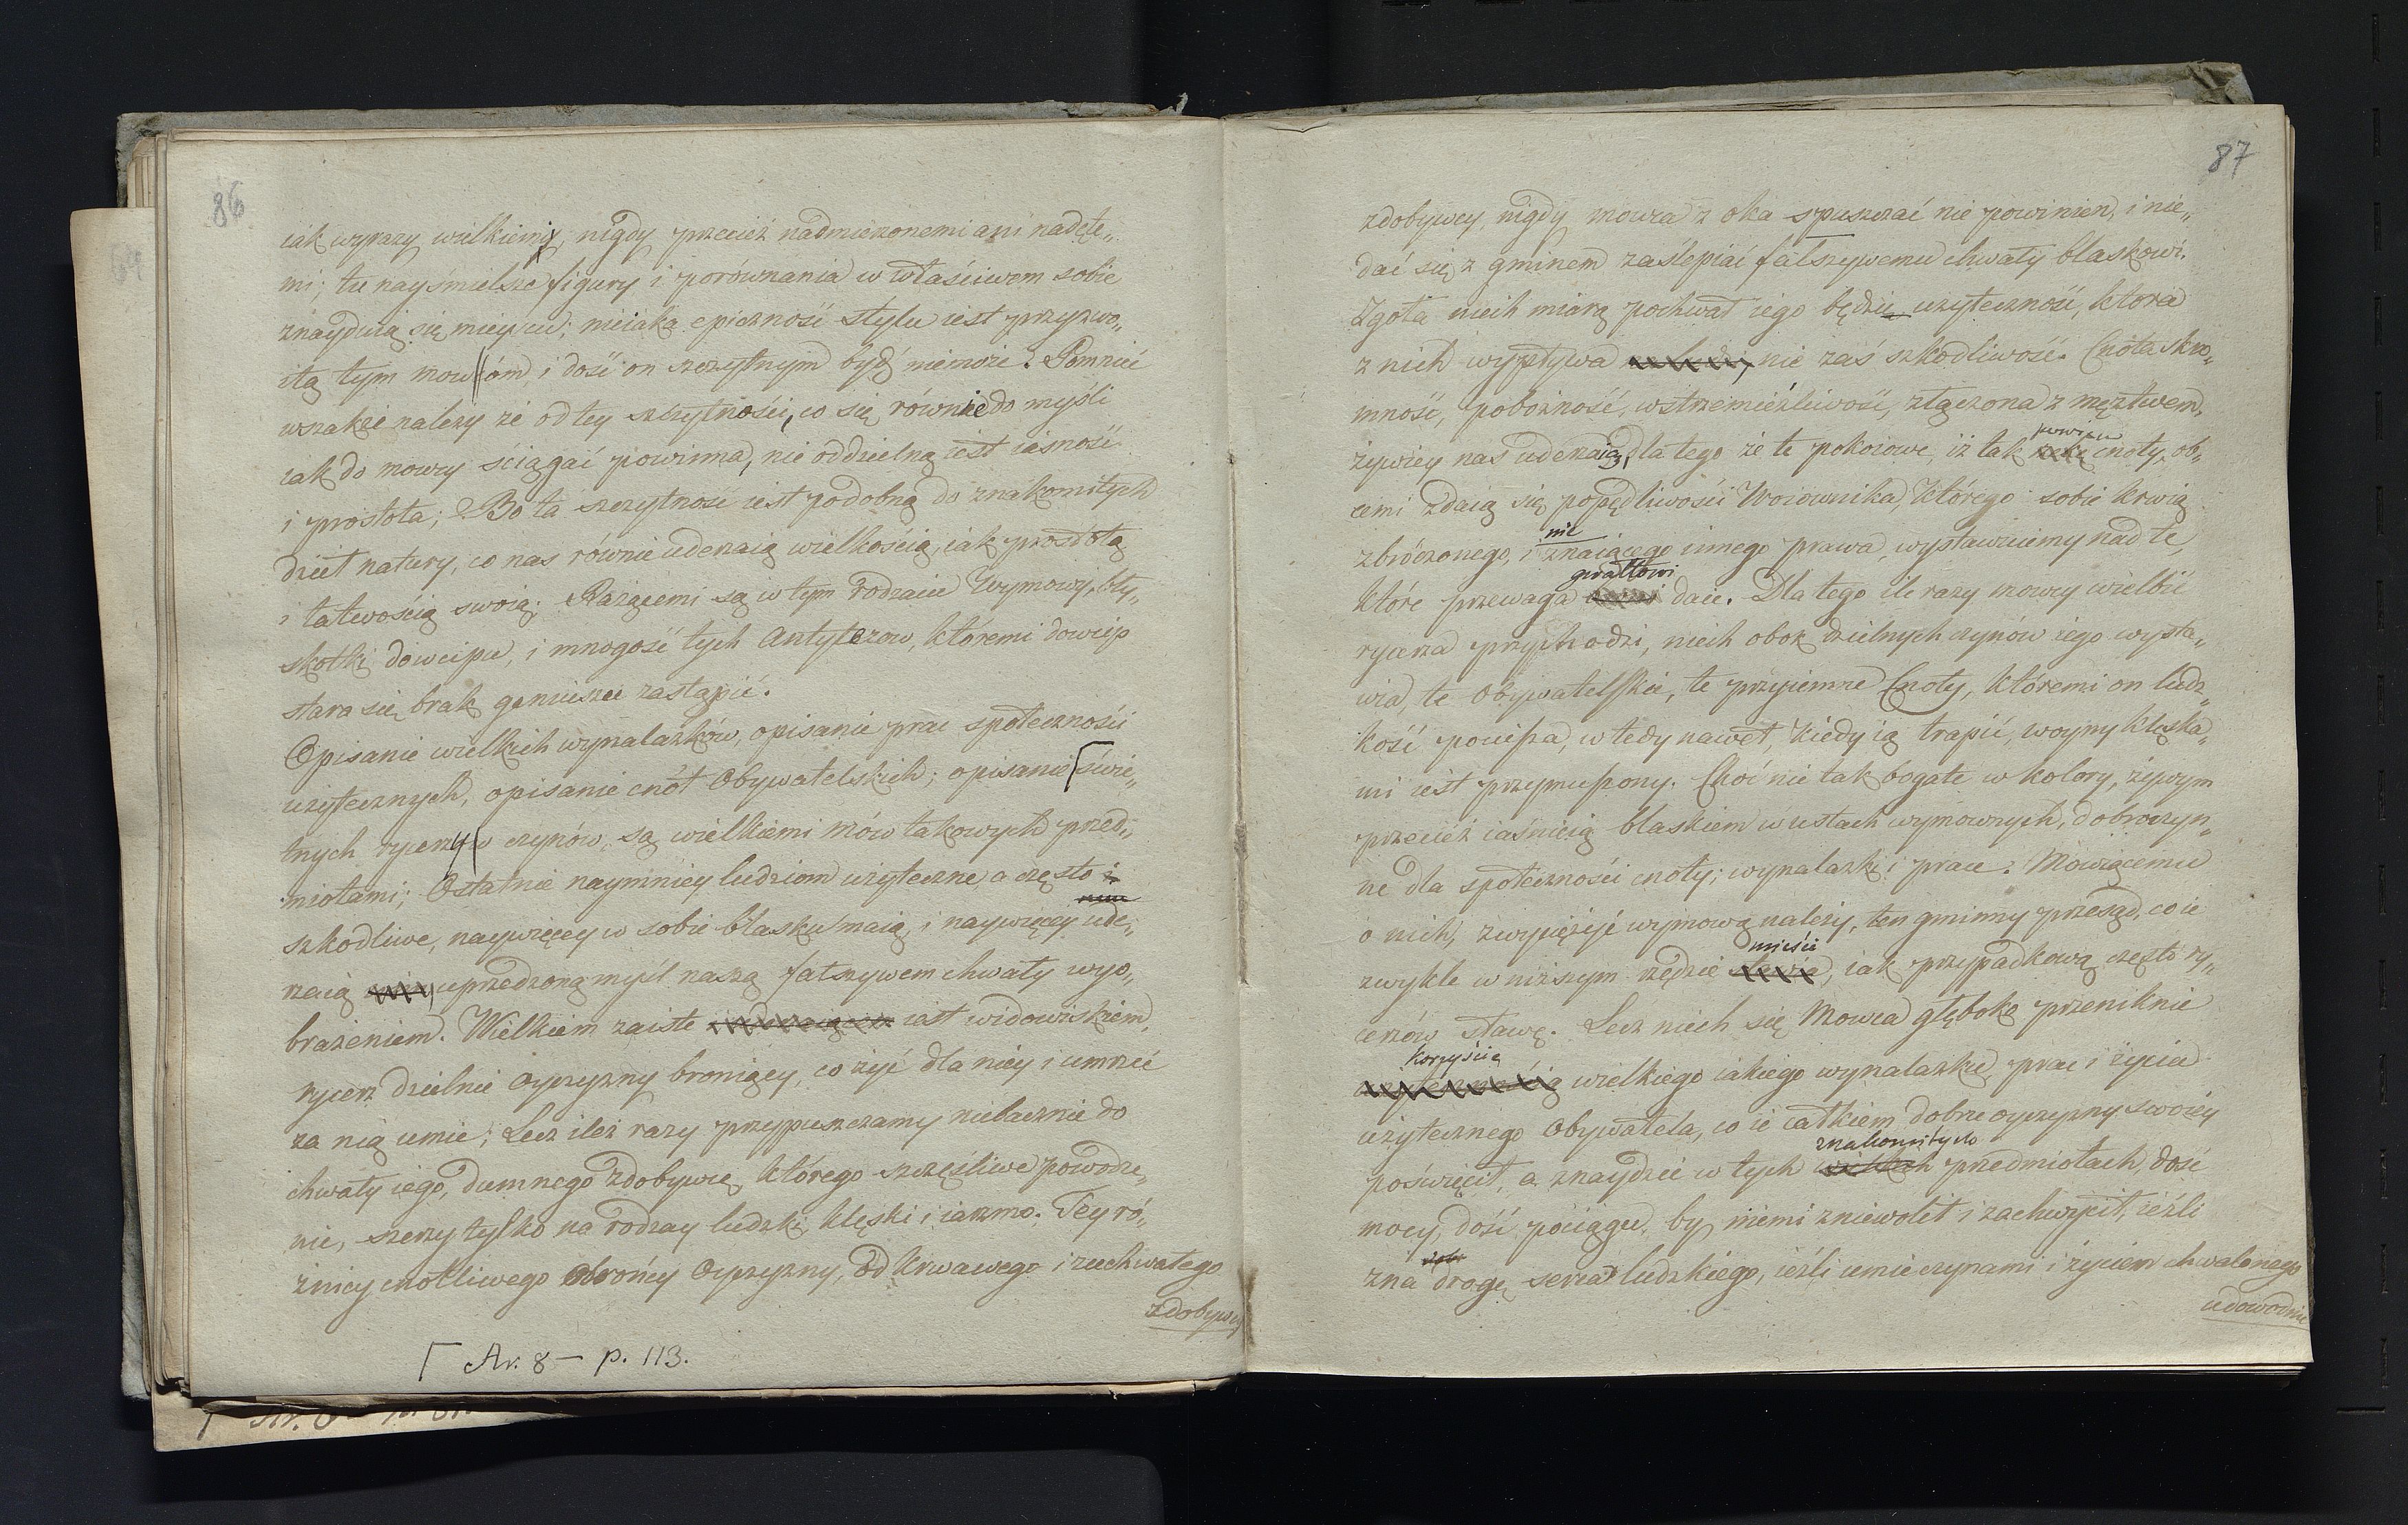 86
iak wyrazy wielkiemi, nigdy przecież nadmierzonemi ani nadęte„
mi; tu nayśmielsze figury i porównania w właściwem sobie
znayduią się mieyscu; nieiaka epiczność stylu iest przyzwo„
itą tym mowom, i dość on szczytnym bydź niemoże. Pomnieć
wszakże należy że od tey szczytności, co się równie do myśli
iak do mowy ściągać powinna, nie oddzielną iest iasność
i prostota; Bo ta szczytność iest podobną do znakomitych
dzieł natury, co nas równie uderzaią wielkością, iak prostotą
i łatwością swoią; Rażącemi są w tym rodzaiu Wymowy, bły„
skotki dowcipu, i mnogość tych Antytezow, któremi dowcip
stara się brak geniuszu zastąpić.
Opisanie wielkich wynalazków, opisanie prac społeczności
użytecznych, opisanie cnót Obywatelskich; opisanie świe„
tnych rycerzy czynów, są wielkiemi mów takowych przed„
miotami; Ostatnie naymniey ludziom użyteczne, a często
szkodliwe, naywięcey w sobie blasku maią, i naywięcey ude„
rzaią uprzedzoną myśl naszą fałszywem chwały wyo„
brażeniem. Wielkiem zaiste iest widowiskiem,
rycerz dzielnie Oyczyzny broniący, co żyć dla niey i umrzeć
za nią umie; Lecz ileż razy przypuszczamy niebacznie do
chwały iego, dumnego zdobywcę, którego szczęśliwe powodze„
nie, szerzy tylko na rodzay ludzki klęski i iarzmo. Tey ró„
żnicy cnotliwego obrońcy Oyczyzny, od krwawego i zuchwałego
zdobywcy
Ar. 8 — p. 113.
87
zdobywcy, nigdy mowca z oka spuszczać nie powinien, i nie„
dać się z gminem zaślepiać fałszywemu chwały blaskowi.
Zgoła niech miarą pochwał iego będzie użyteczność, która
z nich wypływa nie zaś szkodliwość. Cnota skro„
mność, pobożność, wstrzemieźliwość, złączona z męztwem,
żywiey nas uderzaią, dla tego że te pokoiowe, iż tak powiem cnoty, ob„
cemi zdaią się popędliwości Woiownika, którego sobie krwią
zbroczonego, i nie znaiącego innego prawa, wystawuiemy nad te,
które przewaga gwałtowi daie. Dla tego ile razy mowcy wielbić
rycerza przychodzi, niech obok dzielnych czynów iego wysta„
wia, te Obywatelskie, te przyiemne Cnoty, któremi on ludz„
kość pociesza, w tedy nawet, kiedy ią trapić, woyny klęska„
mi iest przymuszony. Choć nie tak bogate w kolory, żywym
przecież iaśnieią blaskiem w ustach wymownych, dobroczyn„
ne dla społeczności cnoty; wynalazki i prace. Mówiącemu
o nich, zwyciężyć wymową należy, ten gminny przesąd, co ie
zwykle w niższym rzędzie mieści, iak przypadkową często ry„
cerzów sławę. Lecz niech się Mowca głęboko przeniknie
korzyścią wielkiego iakiego wynalazku, prac i życia
użytecznego Obywatela, co ie całkiem dobru oyczyzny swoiey
poświęcił, a znaydzie w tych znakomitych przedmiotach, dość
mocy, dość pociągu, by niemi zniewolił i zachwycił, ieźli
zna drogę serca ludzkiego, ieźli umie czynami i życiem chwalonego
udowodnić